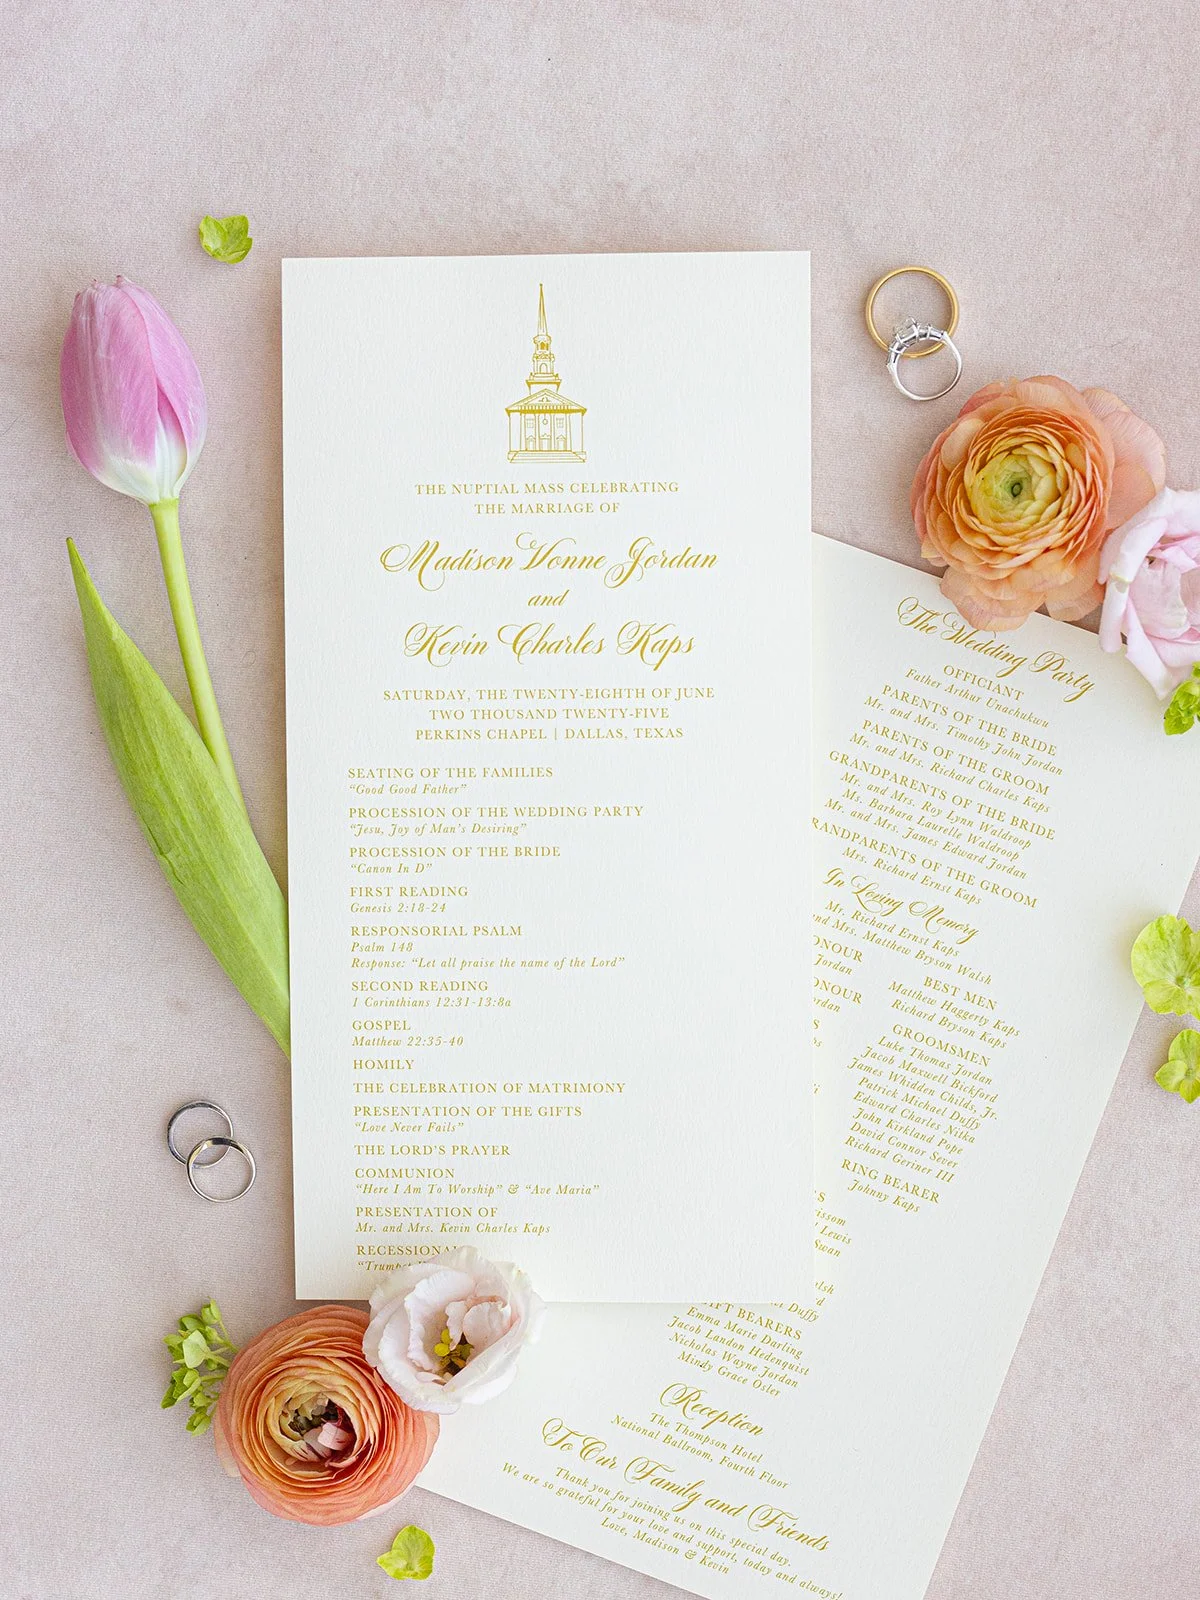 THE NUPTIAL MASS CELEBRATING
THE MARRIAGE OF
Madison Vonne Jordan
and
Kevin Charles Kaps
SATURDAY, THE TWENTY-EIGHTH OF JUNE
TWO THOUSAND TWENTY-FIVE
PERKINS CHAPEL | DALLAS, TEXAS
SEATING OF THE FAMILIES
"Good Good Father"
PROCESSION OF THE WEDDING PARTY
"Jesu, Joy of Man's Desiring"
PROCESSION OF THE BRIDE
"Canon In D"
FIRST READING
Genesis 2:18-24
RESPONSORIAL PSALM
Psalm 148
Response: "Let all praise the name of the Lord"
SECOND READING
1 Corinthians 12:31-13:8a
GOSPEL
Matthew 22:35-40
HOMILY
THE CELEBRATION OF MATRIMONY
PRESENTATION OF THE GIFTS
"Love Never Fails"
THE LORD'S PRAYER
COMMUNION
"Here I Am To Worship" & "Ave Maria"
PRESENTATION OF
Mr. and Mrs. Kevin Charles Kaps
RECESSIONA
"Trumpet
The Wedding Party
OFFICIANT
Father Arthur Unachukwu
PARENTS OF THE BRIDE
Mr. and Mrs. Timothy John Jordan
PARENTS OF THE GROOM
Mr. and Mrs. Richard Charles Kaps
GRANDPARENTS OF THE BRIDE
Mr. and Mrs. Roy Lynn Waldroop
Ms. Barbara Laurelle Waldroop
Mr. and Mrs. James Edward Jordan
RANDPARENTS OF THE GROOM
Mrs. Richard Ernst Kaps
In Loving Memory
Mr. Richard Ernst Kaps
nd Mrs. Matthew Bryson Walsh
ONOUR
Jordan
ONOUR
rdan
S
ps
BEST MEN
Matthew Haggerty Kaps
Richard Bryson Kaps
GROOMSMEN
Luke Thomas Jordan
Jacob Maxwell Bickford
James Whidden Childs, Jr.
Patrick Michael Duffy
Edward Charles Nitka
John Kirkland Pope
David Connor Sever
Richard Geriner III
RING BEARER
Johnny Kaps
S
issom
Lewis
Swan
alsh
d
Duffy
IFT BEARERS
Emma Marie Darling
Jacob Landon Hedenquist
Nicholas Wayne Jordan
Mindy Grace Osler
Reception
The Thompson Hotel
National Ballroom, Fourth Floor
To Our Family and Friends
Thank you for joining us on this special day.
We are so grateful for your love and support, today and always!
Love, Madison & Kevin